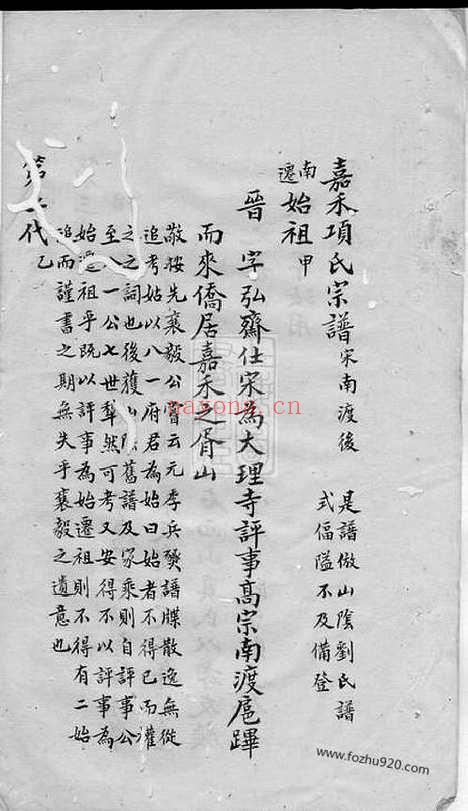 嘉禾項氏宗譜宋南渡後
是譜倣山陰劉氏譜
式偪隘不及備登
南遷始祖甲
晉 字弘齋仕宋為大理寺評事髙宗南渡扈蹕
而來僑居嘉禾之胥山
敬按先襄毅公嘗云元季兵燹譜牒散逸無從
追考姑以八一府君為始曰始者不得已而權
之之詞也後獲山陰舊譜及家乘則自評事公
至八一公七世犁然可考又安得不以評事為
始遷祖乎既以評事為始遷祖則不得有二始
追而謹書之期無失乎襄毅之遺意也
第 代乙
nayona.cn
www.fozhu920.com